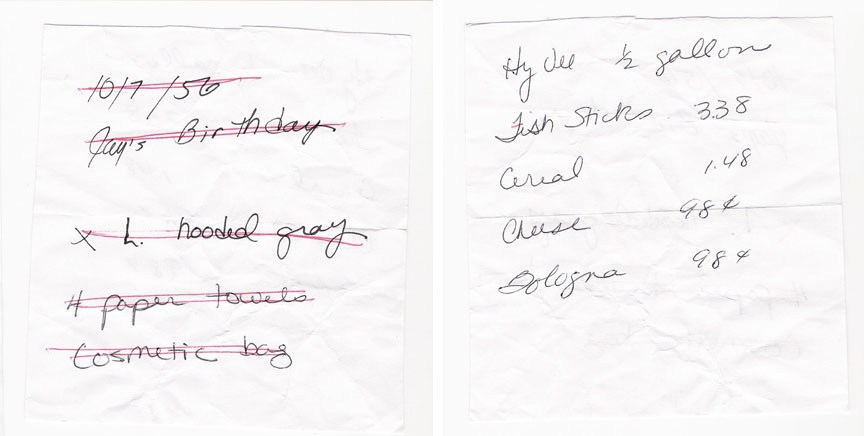 10/7/56
Jay's Birthday
X L. hooded gray
4 paper towels
Cosmetic bag
Hy Vee ½ gallon
Fish Sticks 3.38
Cereal 1.48
Cheese 98¢
Bologna 98¢